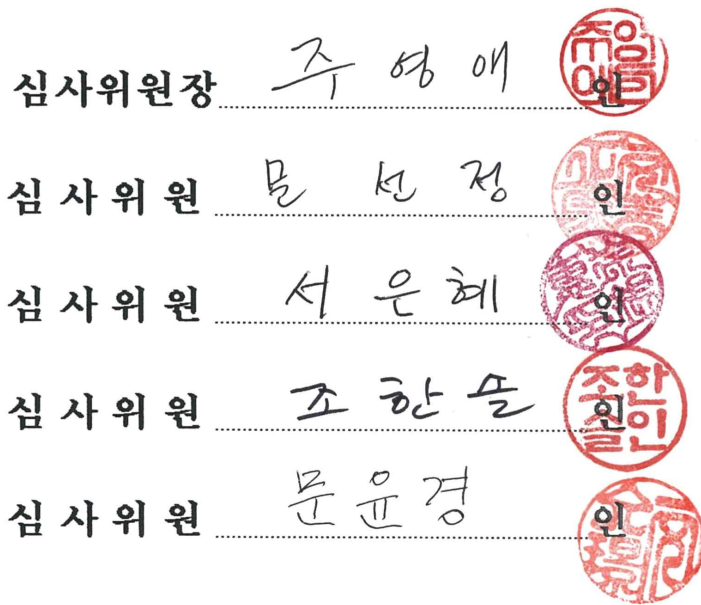 심사위원장 주영애 인
심사위원 문선정 인
심사위원 서은혜 인
심사위원 조한슬 인
심사위원 문윤경 인